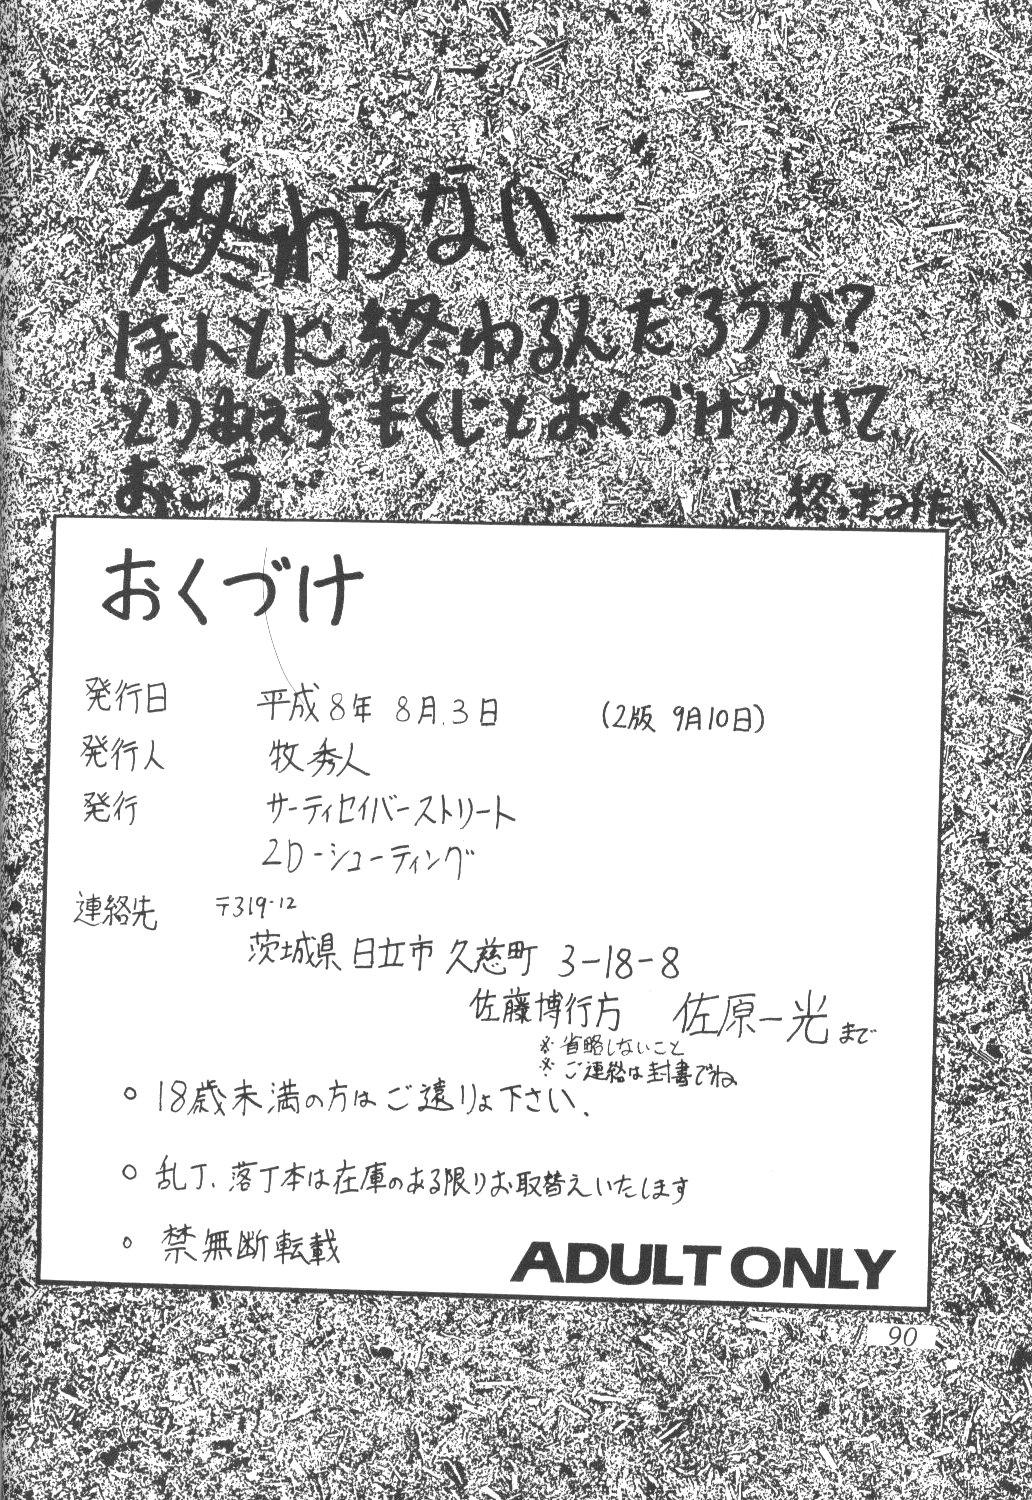 終わらないー
ほんとに終わるんだろうか?
とりあえず もくじとおくづけかいて
おこう…
終ったみたい
おくづけ
発行日 平成8年 8月.3日 (2版 9月10日)
発行人 牧 秀人
発行 サーティセイバーストリート
2D-シューティング
連絡先 〒319-12
茨城県 日立市 久慈町 3-18-8
佐藤博行方 佐原一光まで
※省略しないこと
※ご連絡は封書でね
○ 18歳未満の方はご遠りょ下さい.
○ 乱丁、落丁本は在庫のある限りお取替えいたします
○ 禁無断転載
ADULT ONLY
90